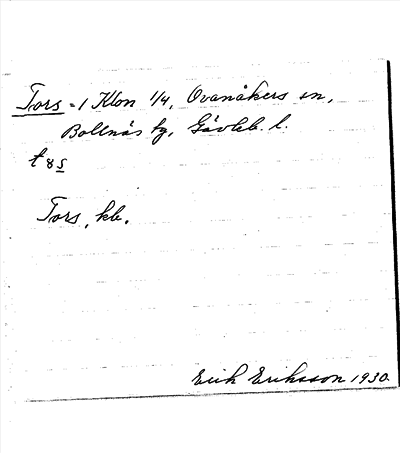 Tors = 1 Klon 1/4, Ovanåkers sn,
Bollnäs tg, Gävleb. l.
t ୪ s
Tors, kb.
Erik Eriksson 1930